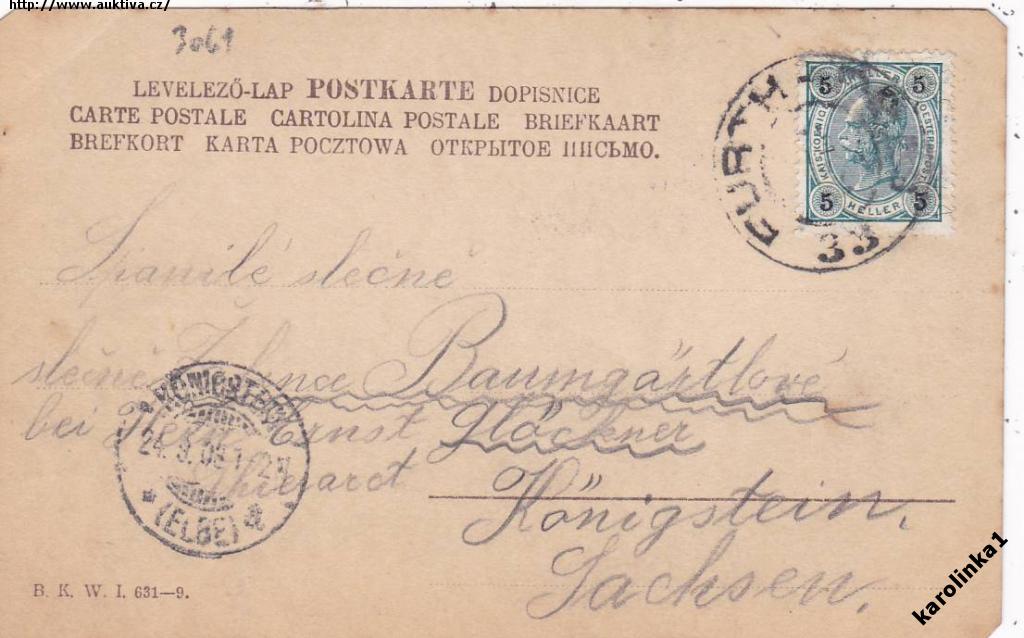 http://www.auktiva.cz/
3061
LEVELEZŐ-LAP POSTKARTE DOPISNICE
CARTE POSTALE CARTOLINA POSTALE BRIEFKAART
BREFKORT KARTA POCZTOWA ОТКРЫТОЕ ПИСЬМО.
5 5
KAIS. KOENIGL. OESTERR. POST
5 HELLER 5
FURTH
33
Spanilé slečně
slečně Baumgärtlové
bei Herrn Ernst Glöckner
Königstein,
Sachsen.
KÖNIGSTEIN
24. 3. 03. 1
(ELBE)
B. K. W. I. 631—9.
karolinka1